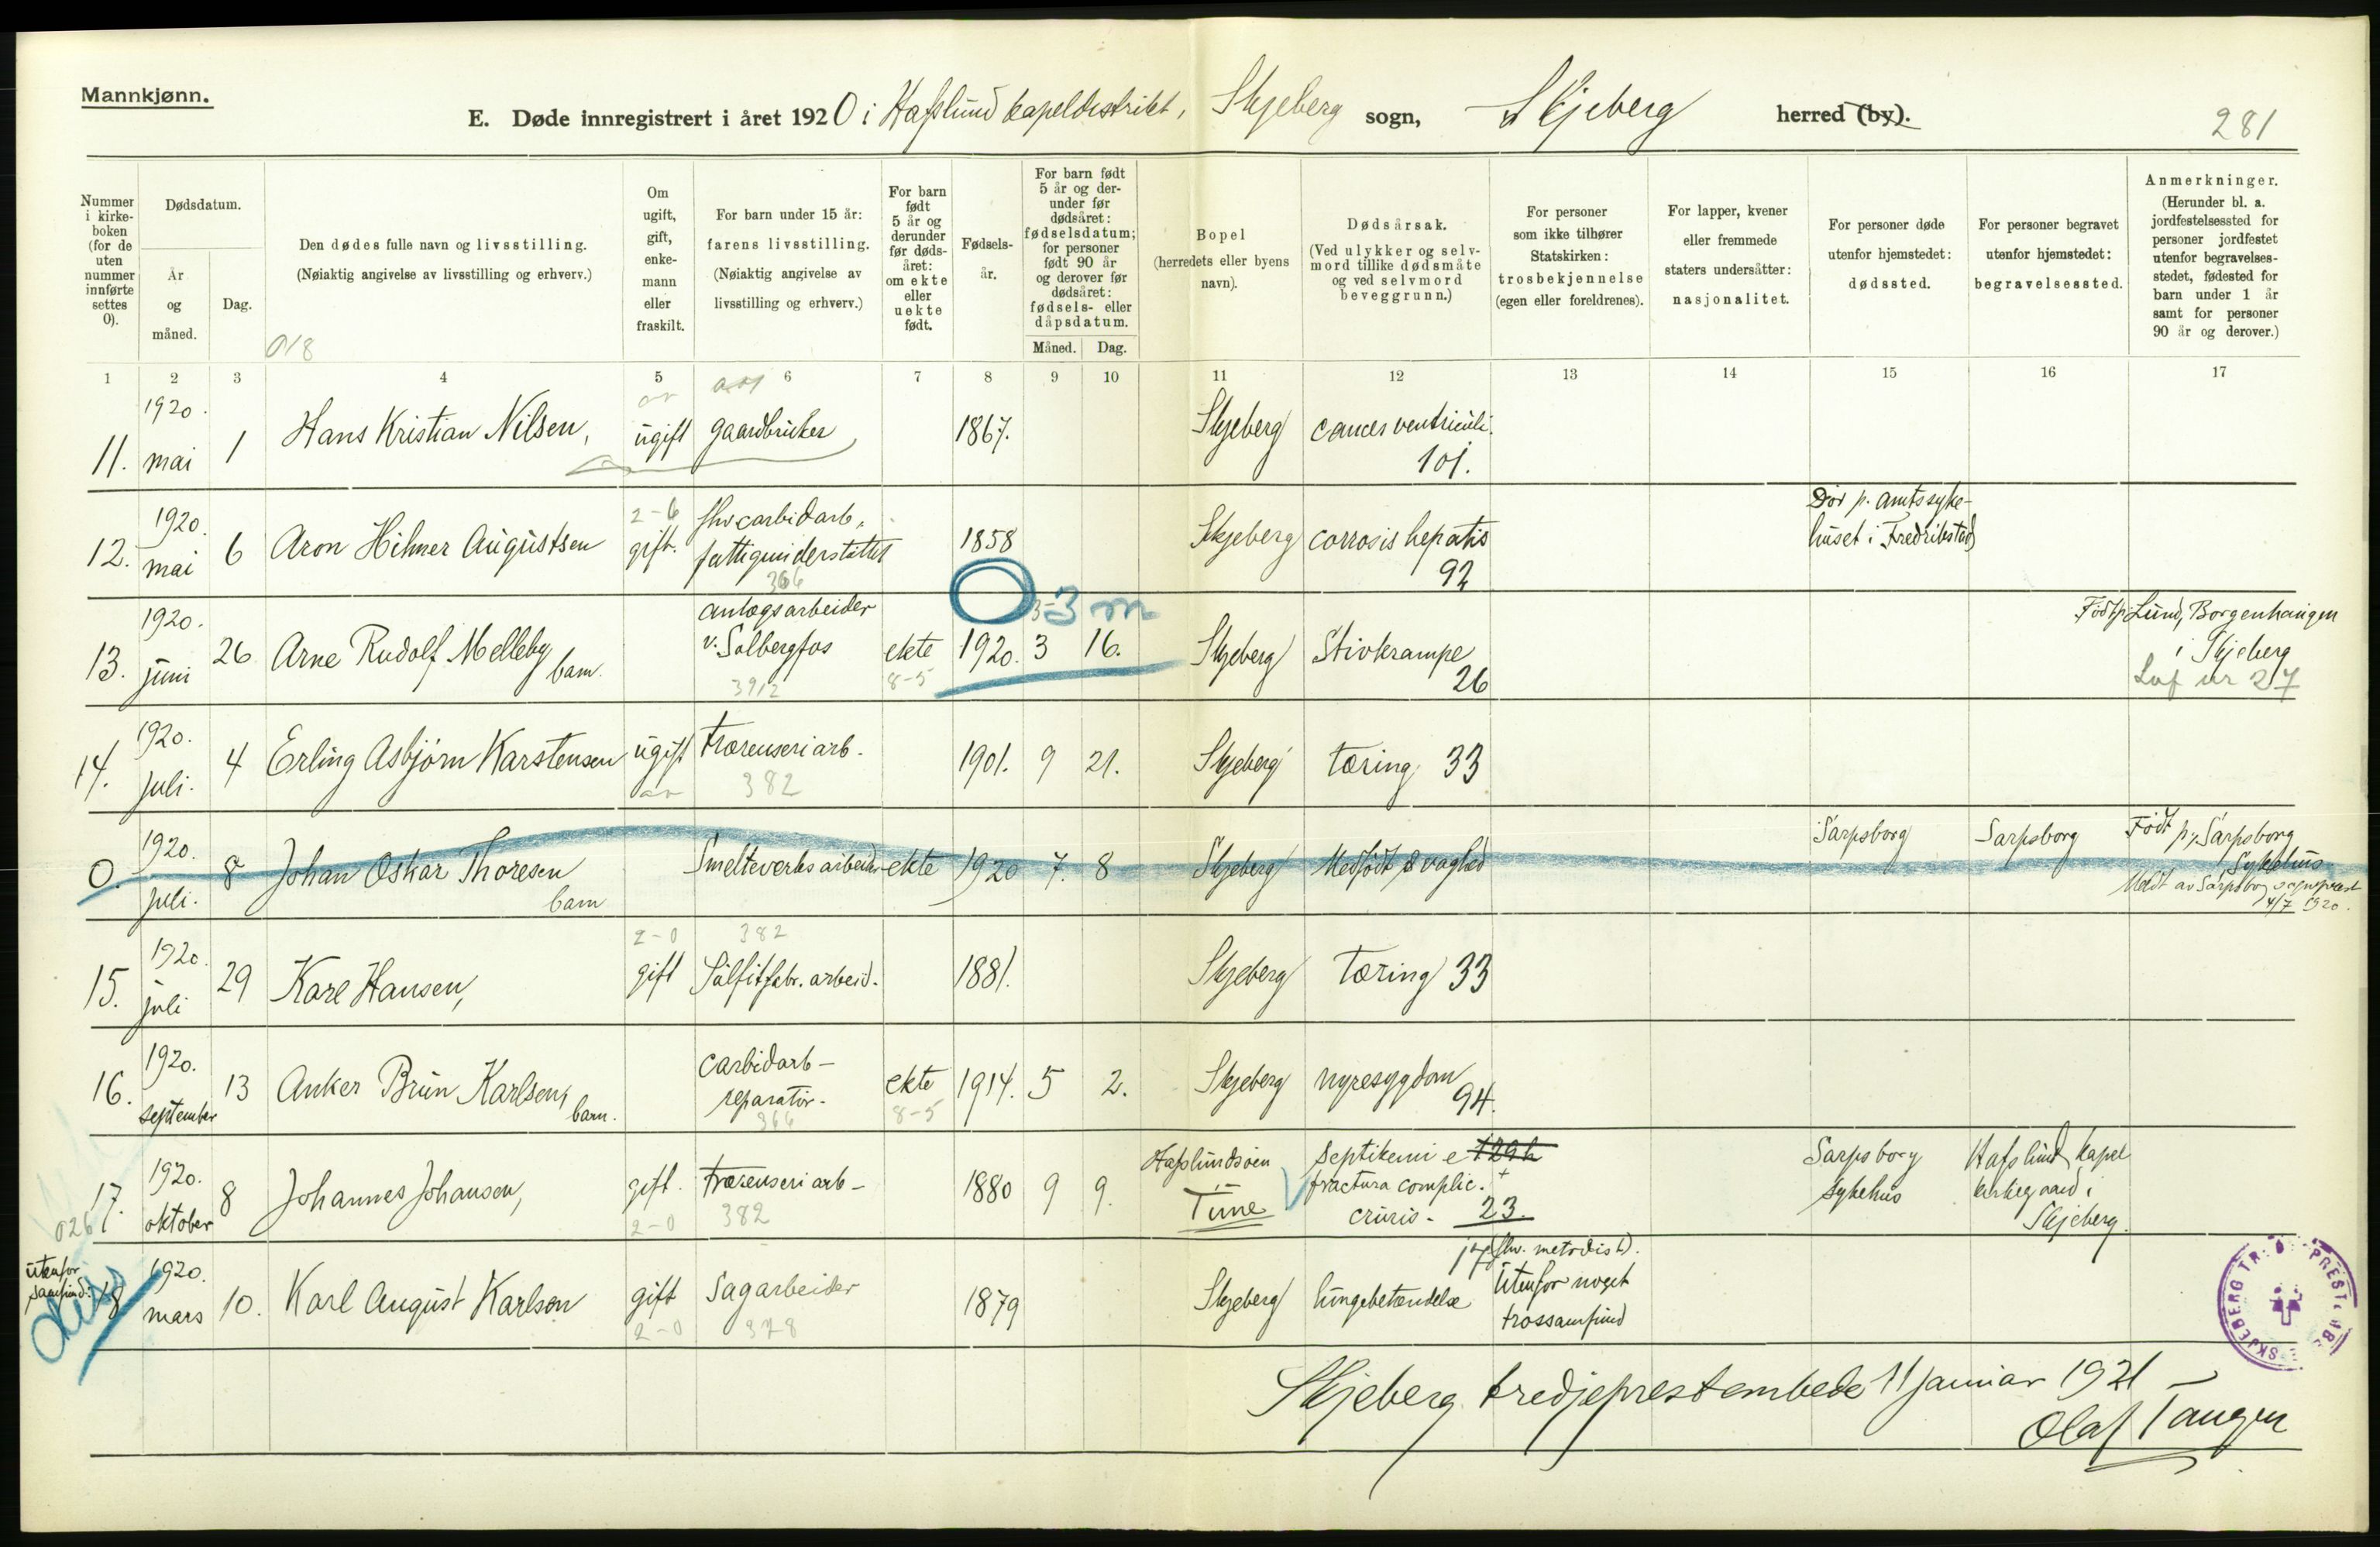 Mannkjønn.
E. Døde innregistrert i året 1920 i Hafslund kapeldistrikt, Skjeberg sogn, Skjeberg herred (by).
281
Nummer i kirke-boken (for de uten nummer innførte settes 0).
Dødsdatum.
År og måned.
Dag.
Den dødes fulle navn og livsstilling.
(Nøiaktig angivelse av livsstilling og erhverv.)
018
Om ugift, gift, enke-mann eller fraskilt.
For barn under 15 år: farens livsstilling.
(Nøiaktig angivelse av livsstilling og erhverv.)
For barn født 5 år og derunder før døds-året: om ekte eller uekte født.
Fødsels-år.
For barn født 5 år og der-under før dødsåret: fødselsdatum; for personer født 90 år og derover før dødsåret: fødsels- eller dåpsdatum.
Måned. Dag.
Bopel (herredets eller byens navn).
Dødsårsak.
(Ved ulykker og selv-mord tillike dødsmåte og ved selvmord beveggrunn.)
For personer som ikke tilhører Statskirken: trosbekjennelse (egen eller foreldrenes).
For lapper, kvener eller fremmede staters undersåtter: nasjonalitet.
For personer døde utenfor hjemstedet: dødssted.
For personer begravet utenfor hjemstedet: begravelsessted.
Anmerkninger.
(Herunder bl. a. jordfestelsessted for personer jordfestet utenfor begravelses-stedet, fødested for barn under 1 år samt for personer 90 år og derover.)
1 2 3 4 5 6 7 8 9 10 11 12 13 14 15 16 17
11. 1920. mai 1 Hans Kristian Nilsen, ugift gaardbruker 1867. Skjeberg cancer ventriculi. 101.
12. 1920. mai 6 Aron Hilmer Augustsen 2-6 gift. fhv carbidarb, fattigunderstøttet 366 1858 Skjeberg corrosis hepatis 92 Død p. amtssyke-huset i Fredrikstad
13. 1920. juni 26 Arne Rudolf Melleby barn. anlægsarbeider v. Solbergfos 3912 ekte 8-5 1920. 3 16. 3 m Skjeberg Stivkrampe 26 Født p. Lund, Borgenhaugen i Skjeberg
nr 27
14. 1920. juli. 4 Erling Asbjørn Karstensen ugift træsenseriarb. 382 1901. 9 21. Skjeberg tæring 33
0. 1920. juli. 8 Johan Oskar Thoresen barn Smelteverksarbeider ekte 1920 7. 8 Skjeberg Medfødt svaghed Sarpsborg Sarpsborg Født p. Sarpsborg Sykehus
Meldt av Sarpsborg sogneprest 4/7 1920.
15. 1920. juli 29 Karl Hansen, 2-0 gift 382 Sulfitfabr. arbeid. 1881. Skjeberg Tæring 33
16. 1920. september 13 Anker Brun Karlsen, barn. carbidarb - reparatør. 366 ekte 8-5 1914. 5 2. Skjeberg nyresygdom 94.
026 17. 1920. oktober 8 Johannes Johansen, gift. 2-0 træsenseriarb - 382 1880 9 9. Hafslundsøen Tune Septikemi e fractura complic. cruris - 23. Sarpsborg sykehus Hafslund kapel kirkegaard i Skjeberg.
utenfor samfund: 18 1920. mars 10. Karl August Karlsen gift 2-0 Sagarbeider 378 1879 Skjeberg lungebetændelse fhv. metodist). Utenfor noget trossamfund
Skjeberg tredjeprestembede 11 januar 1921 -
Olaf Tangen